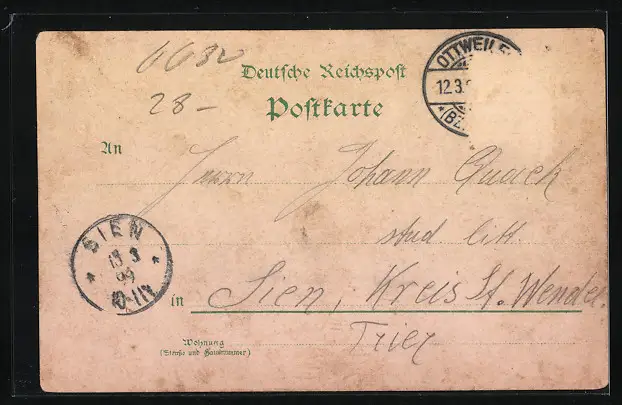 6632
Deutsche Reichspost
28-
Postkarte
OTTWEILE
12.3.
*(BZ
An
Herrn Johann Quack
stud. litt.
SIEN
13 3
99
10-11V
in Sien, Kreis St. Wendel
Trier
Wohnung
(Straße und Hausnummer)